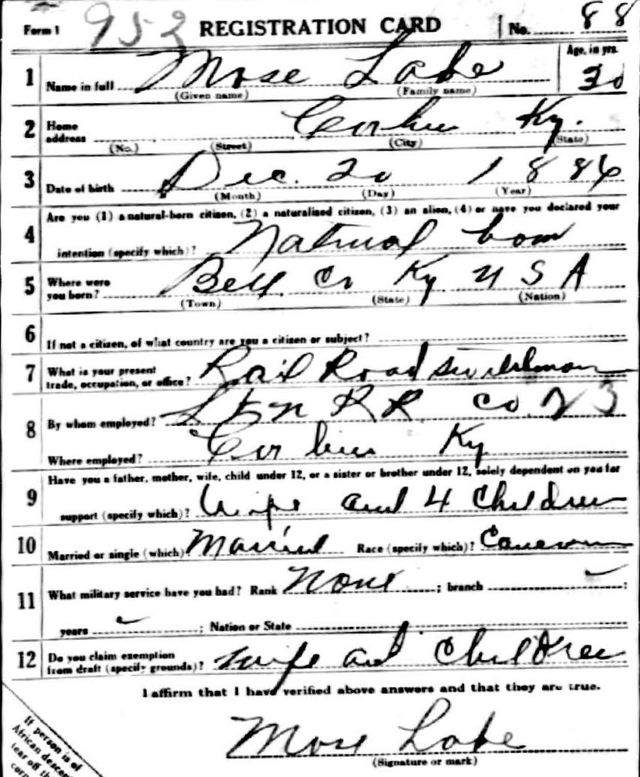 Form 1 952 REGISTRATION CARD No. 88
1 Name in full Mose Lake Age, in yrs. 30
(Given name) (Family name)
2 Home address Corbin Ky.
(No.) (Street) (City) (State)
3 Date of birth Dec. 20 1886
(Month) (Day) (Year)
Are you (1) a natural-born citizen, (2) a naturalized citizen, (3) an alien, (4) or have you declared your
4 intention (specify which)? Natural born
5 Where were you born? Bell Co Ky U S A
(Town) (State) (Nation)
6 If not a citizen, of what country are you a citizen or subject?
7 What is your present trade, occupation, or office? Rail Road switchman
8 By whom employed? L & N RR Co 23
Where employed? Corbin Ky
Have you a father, mother, wife, child under 12, or a sister or brother under 12, solely dependent on you for
9 support (specify which)? Wife and 4 Children
10 Married or single (which)? Married Race (specify which)?
11 What military service have you had? Rank None ; branch ;
years ; Nation or State
12 Do you claim exemption from draft (specify grounds)? Wife and Children
I affirm that I have verified above answers and that they are true.
Mose Lake
(Signature or mark)
If person is of
African descent
tear off